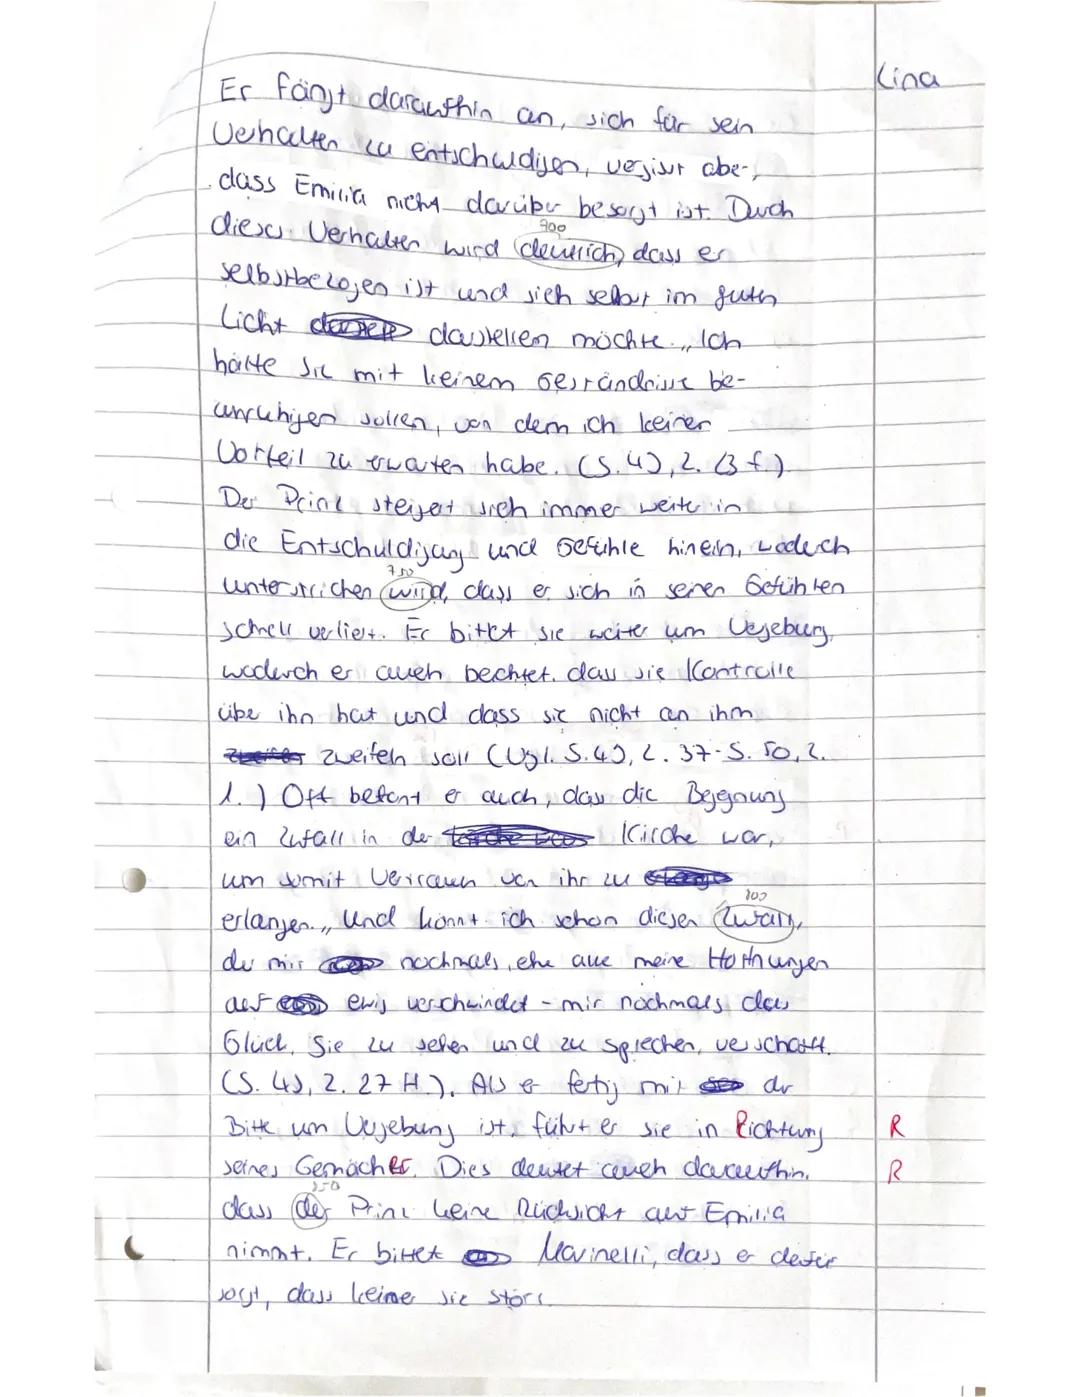 Lina
Er fängt daraufhin an, sich für sein
Verhalten zu entschuldigen, vergisst aber,
dass Emilia nicht darüber besorgt ist. Durch
700
dieses Verhalten wird deutlich, dass er
selbstbezogen ist und sich selbst im guten
Licht darstellen möchte. „Ich
hätte Sie mit keinem Geständnisse be-
unruhigen sollen, von dem ich keinen
Vorteil zu erwarten habe. (S. 49, Z. 13 f.).
Der Prinz steigert sich immer weiter in
die Entschuldigung und Gefühle hinein, wodurch
750
unterstrichen wird, dass er sich in seinen Gefühlen
schnell verliert. Er bittet sie weiter um Vergebung,
wodurch er auch dass sie Kontrolle
über ihn hat und dass sie nicht an ihm
zweifeln soll (Vgl. S. 49, Z. 37 - S. 50, Z.
1.) Oft betont er auch, dass die Begegnung
ein Zufall in der Kirche war,
um somit Vertrauen von ihr zu
800
erlangen. „Und könnt ich schon diesen Zufall,
der mir nochmals, ehe alle meine Hoffnungen
auf ewig verschwindet - mir nochmals das
Glück, Sie zu sehen und zu sprechen, verschafft.
(S. 49, Z. 27 ff.). Als er fertig mit der
Bitte um Vergebung ist, führt er sie in Richtung R
seines Gemaches. Dies deutet auch daraufhin, R
850
dass der Prinz keine Rücksicht auf Emilia
nimmt. Er bittet Marinelli, dass er dafür
sorgt, dass keiner sie stört.